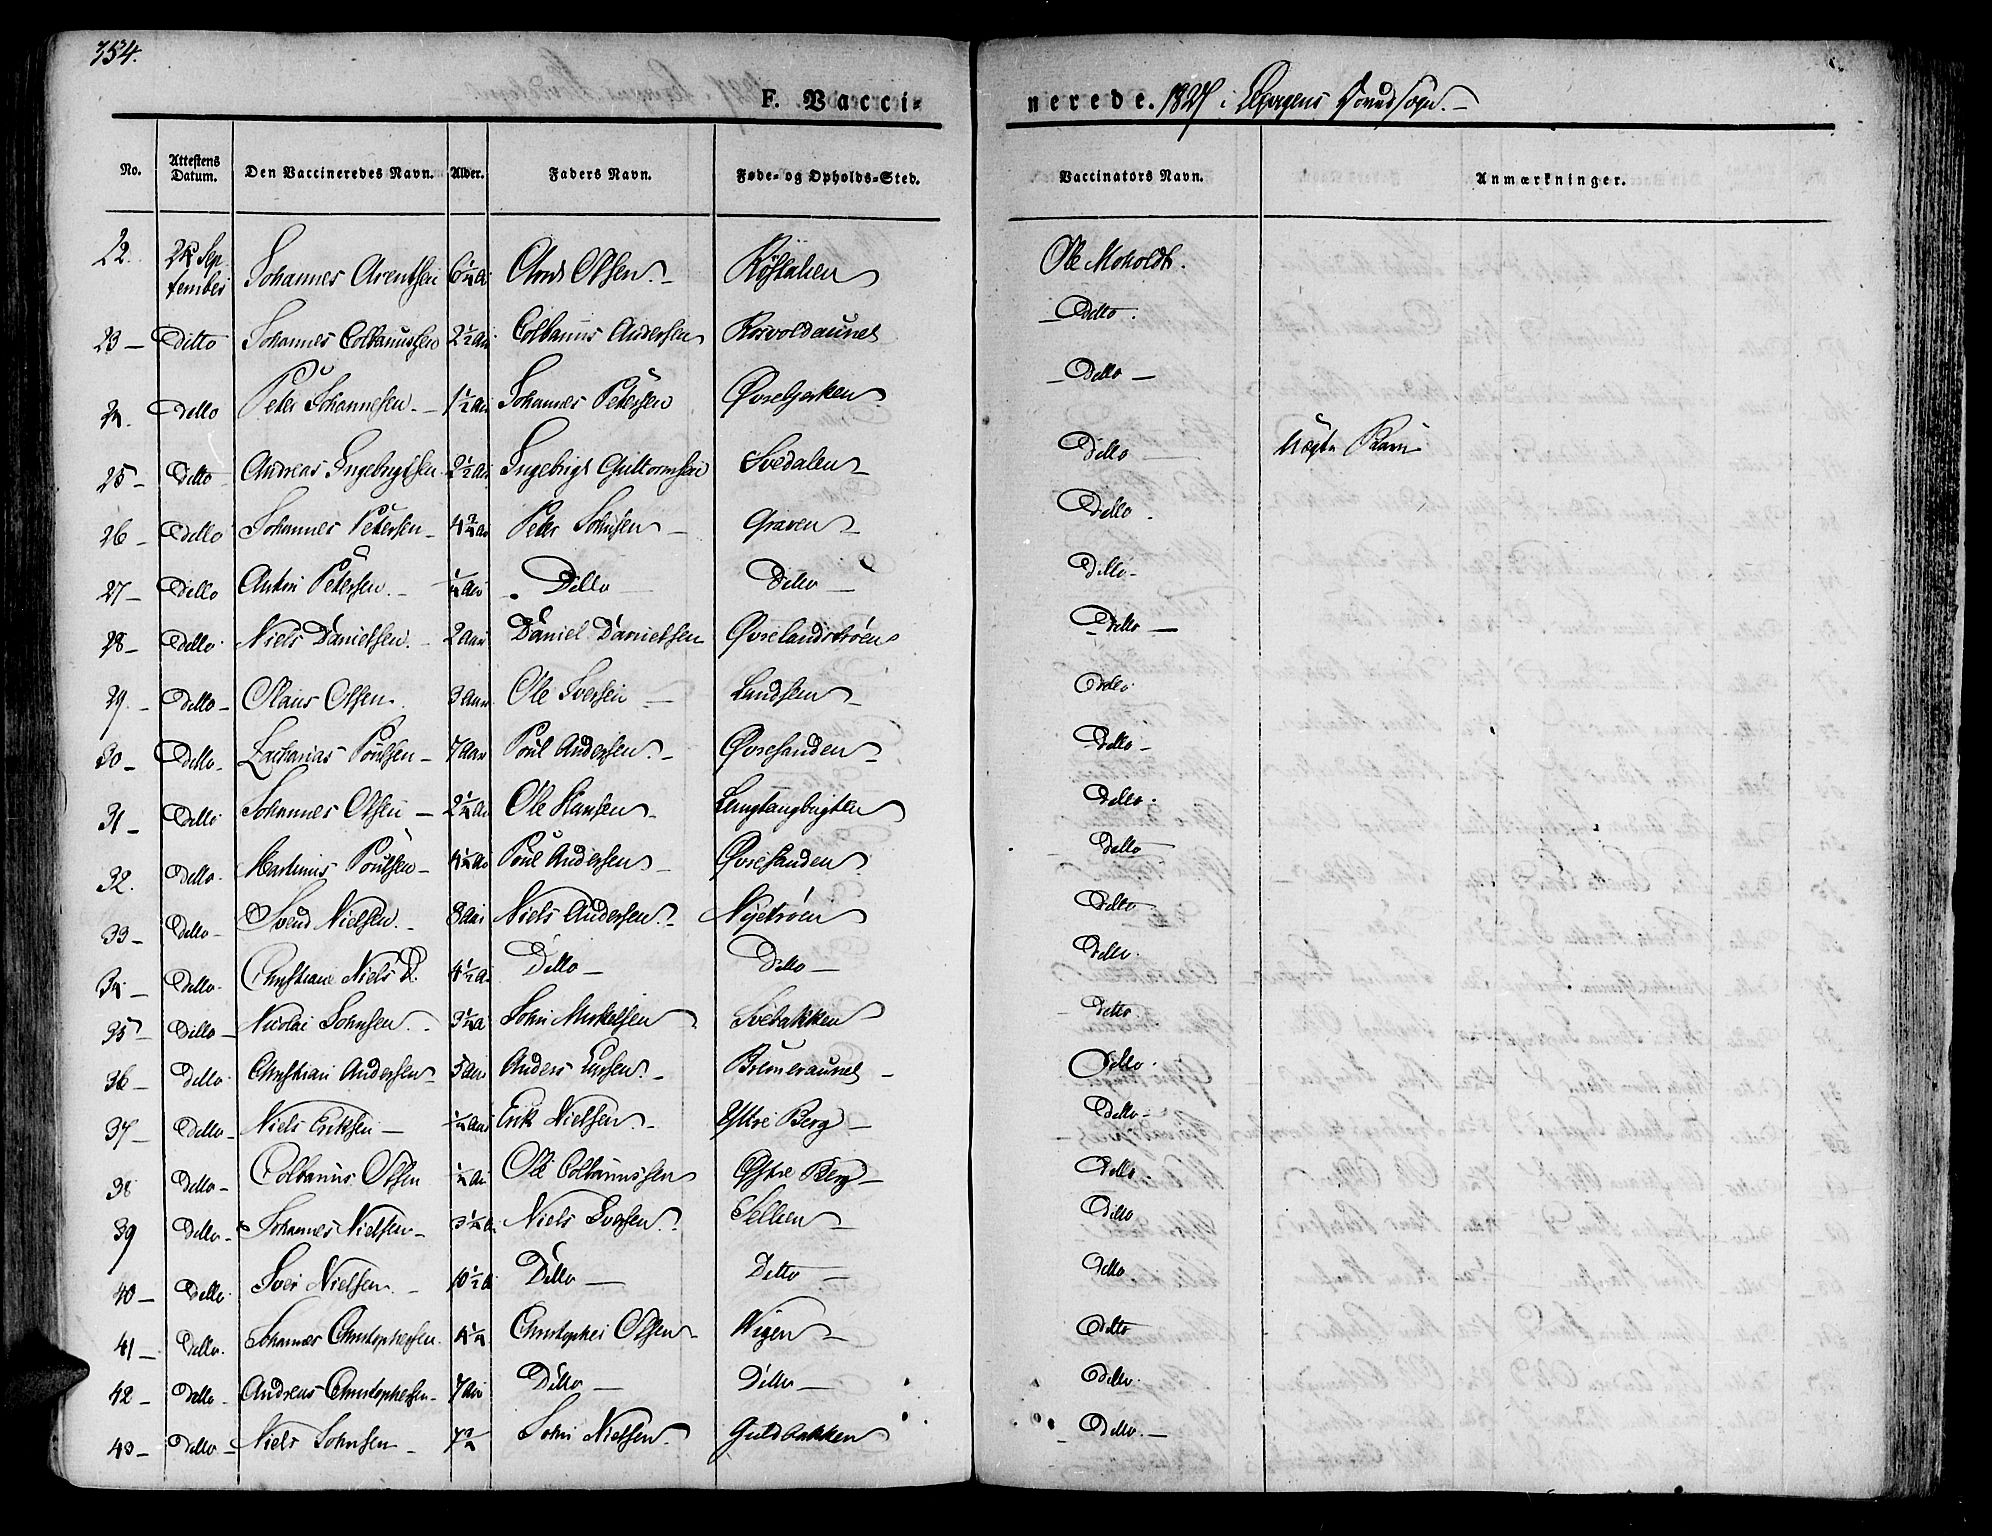 354.
F. Vacci-
nerede. 1827 i
No. Attestens Datum. Den Vaccineredes Navn. Alder. Faders Navn. Føde- og Opholds-Sted. Vaccinators Navn. Anmærkninger.
22. 24 September Johannes Arentsen 6 1/4 Olsen. Ole Moholdt.
23 Ditto Johannes Colbanussen 2 1/2 Aar Colbanus Andersen Rosvoldaunet Ditto.
24. Ditto Peter Johannesen. 1 1/2 Aar Johannes Petersen Ditto
25 Ditto Andreas Engebrigtsen 2 1/2 Aar Ingebrigt Guttormsen Svedalen Ditto
26 Ditto Johannes Petersen 4 3/4 Aar Peter Johnsen Graven Ditto
27 Ditto Anton Petersen. 1/4 Aar Ditto Ditto Ditto
28 Ditto Niels Danielsen. 2 Aar Daniel Danielsen Øvrelandstrøen Ditto
29. Ditto Olaus Olsen. 3 Aar Ole Iversen Ditto
30 Ditto Zacharias Poulsen 7 Aar Poul Andersen. Øvresanden Ditto
31 Ditto Johannes Olsen 2 1/4 Aar Ole Hansen Ditto.
32. Ditto. Martinus Poulsen 4 1/4 Aar Poul Andersen Øvresanden Ditto
33 Ditto Svend Nielsen. 8 Aar Niels Andersen. Nyetrøen Ditto
34 Ditto. Christiane Niels D. 4 1/2 Aar Ditto Ditto Ditto.
35 Ditto Nicolai Johnsen. 3 1/4 A John Mikelsen Svebakken Ditto.
36 Ditto Christian Andersen 5 Aar Anders Larsen. Ditto.
37 Ditto Niels Eriksen 1/4 Aar Erik Nielsen. Østre Berg Ditto
38 Ditto Colbanus Olsen 1/4 Aar Ole Colbanussen Østre Berg Ditto.
39 Ditto Johannes Nielsen 3 1/4 A. Niels Iversen. Ditto
40 Ditto. Iver Nielsen. 10 1/2 A Ditto Ditto Ditto.
41 Ditto. Johannes Christophersen. 4 1/4 Christopher Olsen Wigen Ditto
42 Ditto Andreas Christophersen 7 Aar Ditto Ditto Ditto.
43 Ditto Niels Johnsen 7 3/4 John Nielsen. Guldbakken Ditto.